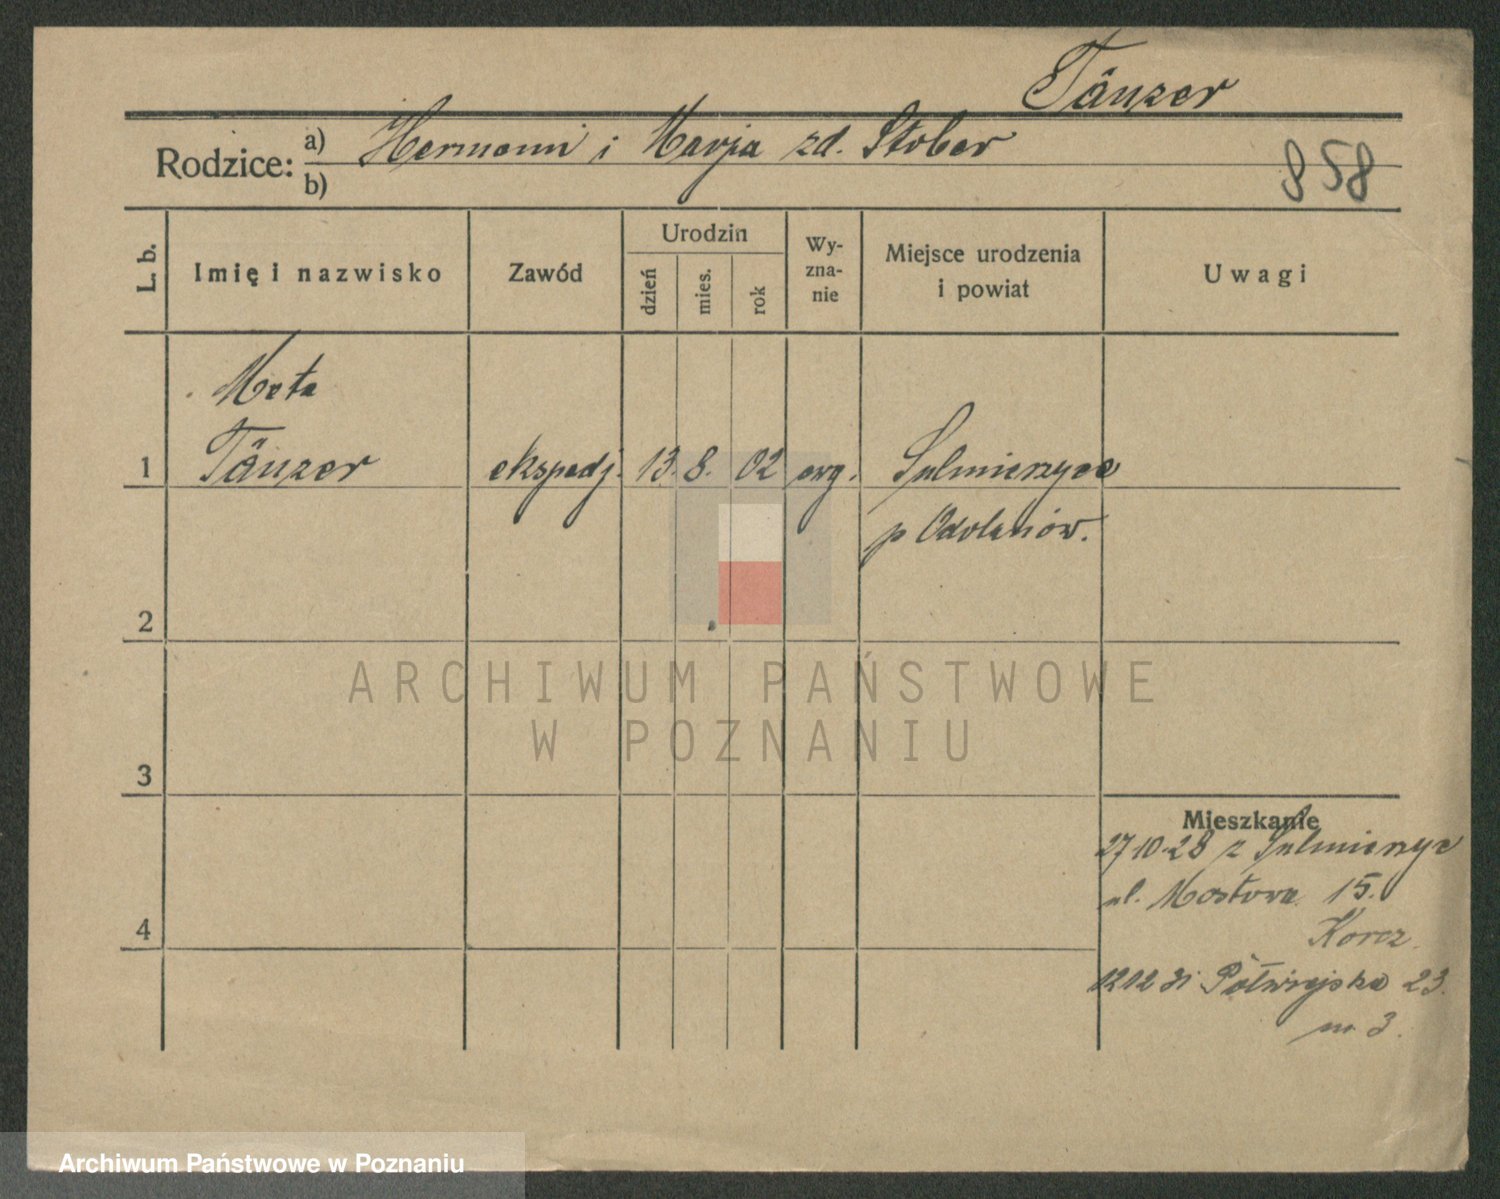 Tänzer
Rodzice: a) Hermann i Marja zd. Stober
b)
858
L. b.
Imię i nazwisko
Zawód
Urodzin
dzień
mies.
rok
Wy-
zna-
nie
Miejsce urodzenia
i powiat
Uwagi
Meta
1 Tänzer ekspedj. 13. 8. 02 ewg. Sulmierzyce
p Odolanów.
2
3
4
Mieszkanie
27 10 28 z Sulmierzyc
ul. Mostowa 15.
Korcz.
12 12 31 Półwiejska 23.
m 3.
ARCHIWUM PAŃSTWOWE
W POZNANIU
Archiwum Państwowe w Poznaniu